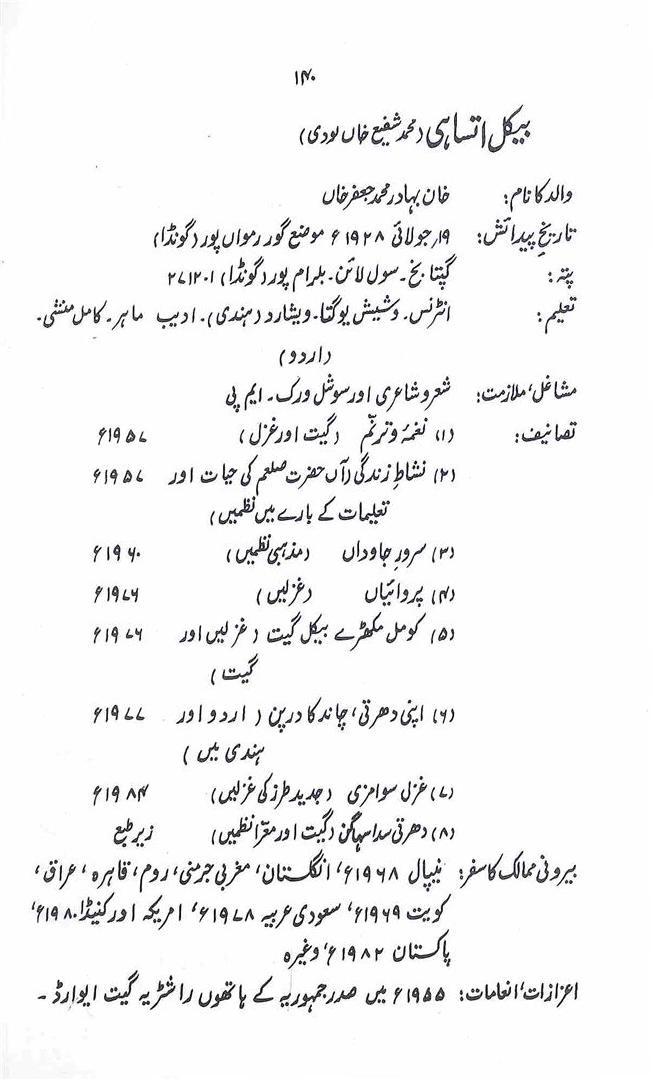 ۱۴۰
بیکل اتساہی (محمد شفیع خاں لودی)
والد کا نام: خان بہادر محمد جعفر خاں
تاریخِ پیدائش: ۱۹ر جولائی ۱۹۲۸ء موضع گور رمواں پور (گونڈا)
پتہ: گپتا بخ۔ سول لائن۔ بلرام پور (گونڈا) ۲۷۱۲۰۱
تعلیم: انٹرنس۔ وشیش یوگتا۔ ویشارد (ہندی)۔ ادیب ماہر۔ کامل منشی۔
(اردو)
مشاغل، ملازمت: شعر و شاعری اور سوشل ورک۔ ایم پی
تصانیف: (۱) نغمہ و ترنّم (گیت اور غزل) ۱۹۵۷ء
(۲) نشاطِ زندگی (آں حضرت صلعم کی حیات اور ۱۹۵۷ء
تعلیمات کے بارے میں نظمیں)
(۳) سرورِ جاوداں (مذہبی نظمیں) ۱۹۶۰ء
(۴) پروائیاں (غزلیں) ۱۹۷۶ء
(۵) کومل مکھڑے بیکل گیت (غزلیں اور ۱۹۷۶ء
گیت)
(۶) اپنی دھرتی، چاند کا درپن (اردو اور ۱۹۷۷ء
ہندی میں)
(۷) غزل سوامزی (جدید طرز کی غزلیں) ۱۹۸۴ء
(۸) دھرتی سدا سہاگن (گیت اور معرّا نظمیں) زیرِ طبع
بیرونی ممالک کا سفر: نیپال ۱۹۶۸ء، انگلستان، مغربی جرمنی، روم، قاہرہ، عراق،
کویت ۱۹۶۹ء، سعودی عربیہ ۱۹۷۸ء، امریکہ اور کنیڈا ۱۹۸۰ء،
پاکستان ۱۹۸۲ء، وغیرہ
اعزازات، انعامات: ۱۹۵۵ء میں صدر جمہوریہ کے ہاتھوں راشٹریہ گیت ایوارڈ۔